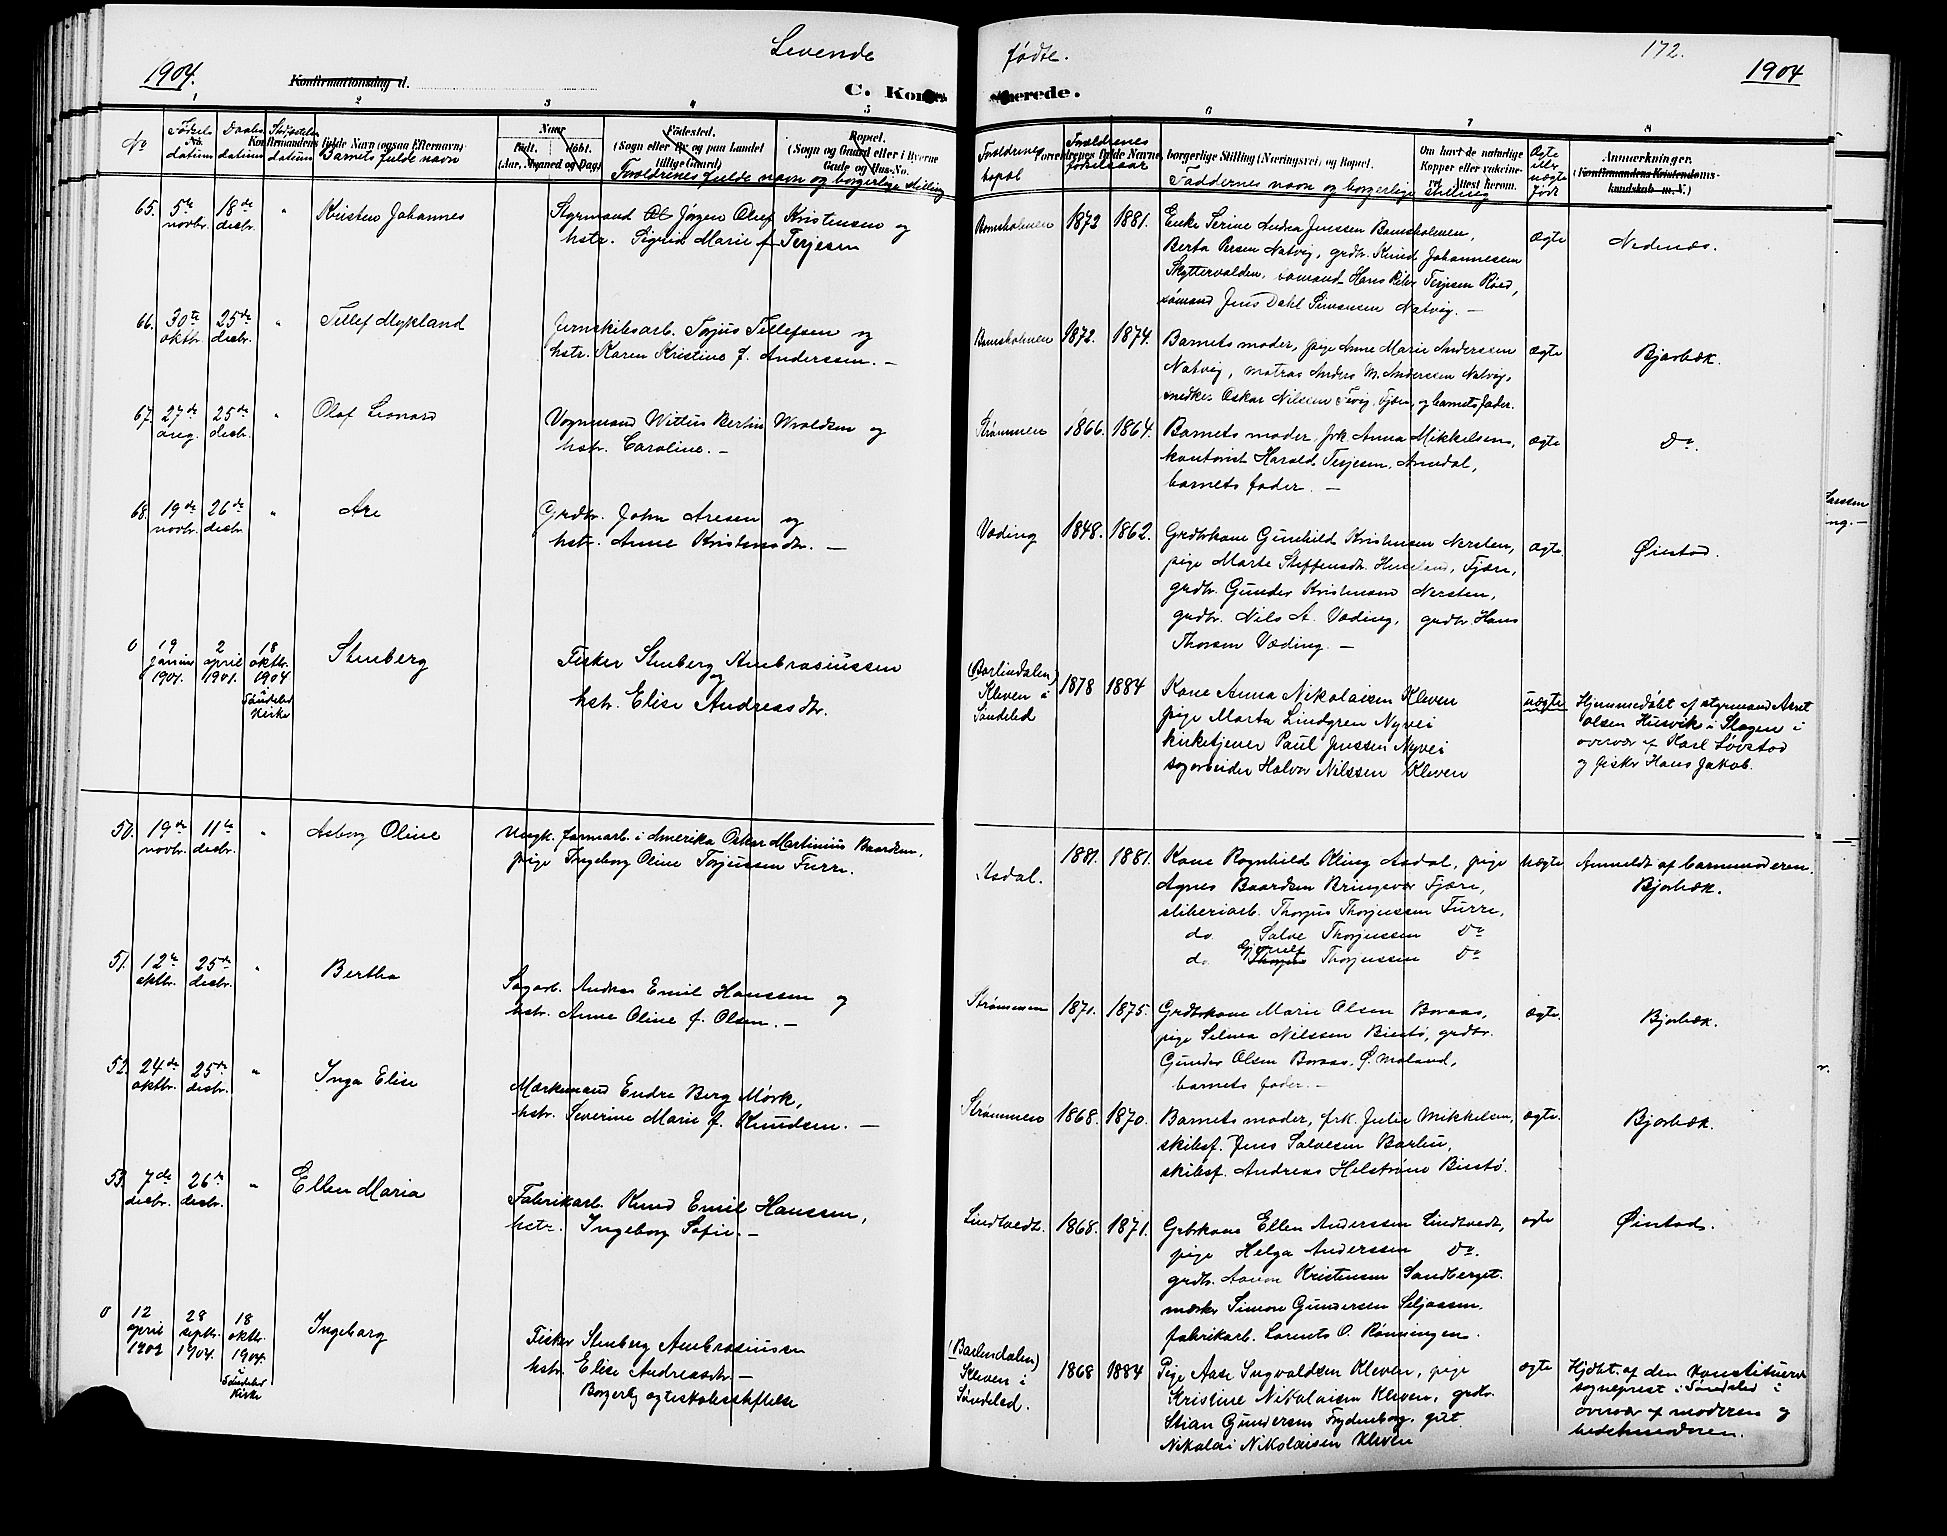 Levende fødte. 172.
1904. Konfirmationsdag d. 1904
C. Konfirmerede.
1 2 3 4 5 6 7 8
No Fødsels datum Daabs datum Barnets fulde navn
Fulde Navn (ogsaa Efternavn)
Naar Født. (Aar, Maaned og Dag) døbt.
Fødested. (Sogn eller By og paa Landet tillige Gaard)
Bopæl. (Sogn og Gaard eller i Byerne Gade og Hus-No.
Forældrenes fulde navn og borgerlige stilling
Forældrenes bopæl Forældrenes fødselsaar
borgerlige Stilling (Næringsvei) og Bopæl.
Faddernes navn og borgerlige stilling
Om havt de naturlige Kopper eller vaccineret, Attest herom.
Ægte eller uægte født
Anmærkninger. (Konfirmandens Kristendomskundskab m. V.)
65. 5te novbr. 18de desbr. " Kristen Johannes
Styrmand Jørgen Olaf Kristensen og
hstr. Sigrid Marie f. Terjesen
Bomsholmen 1872 1881. Enke Serine Andrea Jenssen Bomsholmen,
Berta Persen Natvig, grdbr. Knud Johannesen
sømand Hans Peter Terjesen Roed,
sømand Jens Dahl Simensen Natvig. —
ægte Nedenæs.
66. 30te oktbr. 25de desbr. " Tellef Mykland
Jernskibsarb. Torjus Tellefsen og
hstr. Karen Kristine f. Anderssen. —
Bomsholmen 1872. 1874. Barnets moder, pige Anne Marie Anderssen
Natvig, matros Anders M. Anderssen Natvig,
snedker Oskar Nilssen Fevig, Fjære, og barnets fader.
ægte Bjorbæk.
67. 27de aug. 25de desbr. " Olaf Leonard
Vognmand Wittus Bertin Wroldsen og
hstr. Caroline. —
Strømmen 1866. 1864. Barnets moder, frk. Anna Mikkelsen,
kontorist Harald Terjesen, Arendal,
barnets fader. —
ægte Do.
68. 19de novbr. 26de desbr. " Are
Grdbr. John Aresen og
hstr. Anne Kristensdtr. —
Væding 1848. 1862. Grdbrkone Gunhild Kristensen Nersten,
pige Marte Steffensdtr. Fjære,
grdbr. Gunder Kristensen Nersten,
grdbr. Nils A. Væding, grdbr. Hans
Thorsen Væding. —
ægte Øiestad.
0 19 januar 1901. 2 april 1901. 18 oktbr. 1904 Søndeled Kirke Stenberg
Fisker Stenberg Ambrosiussen
og
hstr. Elise Andreasdtr.
(Barlindalen) Kleven i Søndeled 1878 1884 Kone Anna Nikolaisen Kleven
pige Marta Lindgren Nyvei
kirketjener Paul Jenssen Nyvei
sagarbeider Halvor Nilssen Kleven
uægte Hjemmedøbt af styrmand Anet
Olsen Husvik i Slagen i
overvær af Karl Løvstad
og fisker Hans Jakob.
50. 19de novbr. 11te desbr. " Asborg Oline
Ungk. farmarb. i Amerika Oskar Martinius Baardsen,
pige Ingeborg Oline Torjussen Furre.
Asdal. 1881. 1881. Kone Ragnhild Kling Asdal, pige
Agnes Baardsen Bringsvær Fjære,
sliberiarb. Thorjus Thorjussen Furre,
do. Salve Thorjussen Do
do Gjeruld Thorjussen Do
uægte Anmeldt af barnemoderen.
Bjorbæk.
51. 12te oktbr. 25de desbr. " Bertha
Sagarb. Andreas Emil Hanssen og
hstr. Anne Oline f. Olsen. —
Strømmen 1870. 1875. Grdbrkone Marie Olsen Boraas,
pige Selma Nilssen Biestø, grdbr.
Gunder Olsen Boraas, Ø. Moland,
barnets fader. —
ægte. Bjorbæk.
52. 24de oktbr. 25de desbr. " Inga Elise
Mærkemand Endre Berg Mörk,
hstr. Severine Marie f. Knudsen. —
Strømmen 1868. 1870. Barnets moder, frk. Julie Mikkelsen,
skibsf. Jens Salvesen Barbu,
skibsf. Andreas Helstrøm Biestø.
ægte. Bjorbæk.
53. 7de desbr. 26de desbr. " Ellen Maria
Fabrikarb. Knud Emil Hanssen,
hstr. Ingeborg Sofie. —
Lindtvedt. 1868. 1871. Grbrkone Ellen Anderssen Lindtvedt,
pige Helga Anderssen Do.
grdbr. Aanon Kristensen Sandberget.
mærker Simon Gundersen Seljaasen.
fabrikarb. Lorents O. Rønningen.
ægte Øiestad.
0 12 april 1902 28 septbr. 1904. 18 oktbr. 1904. i Søndeled Kirke Ingeborg
Fisker Stenberg Ambrosiussen
hstr. Elise Andreasdtr. —
Borgerlig ægteskabsstiftelse
(Barlindalen) Kleven i Søndeled. 1868 1884 Pige Aase Ingvaldsen Kleven, pige
Kristine Nikolaisen Kleven, grdbr.
Stian Gundersen Frydenborg. gut
Nikolai Nikolaisen Kleven
ægte Hjdøbt. af den konstituerede
sogneprest i Søndeled i
overvær af moderen og
bedstemoderen.